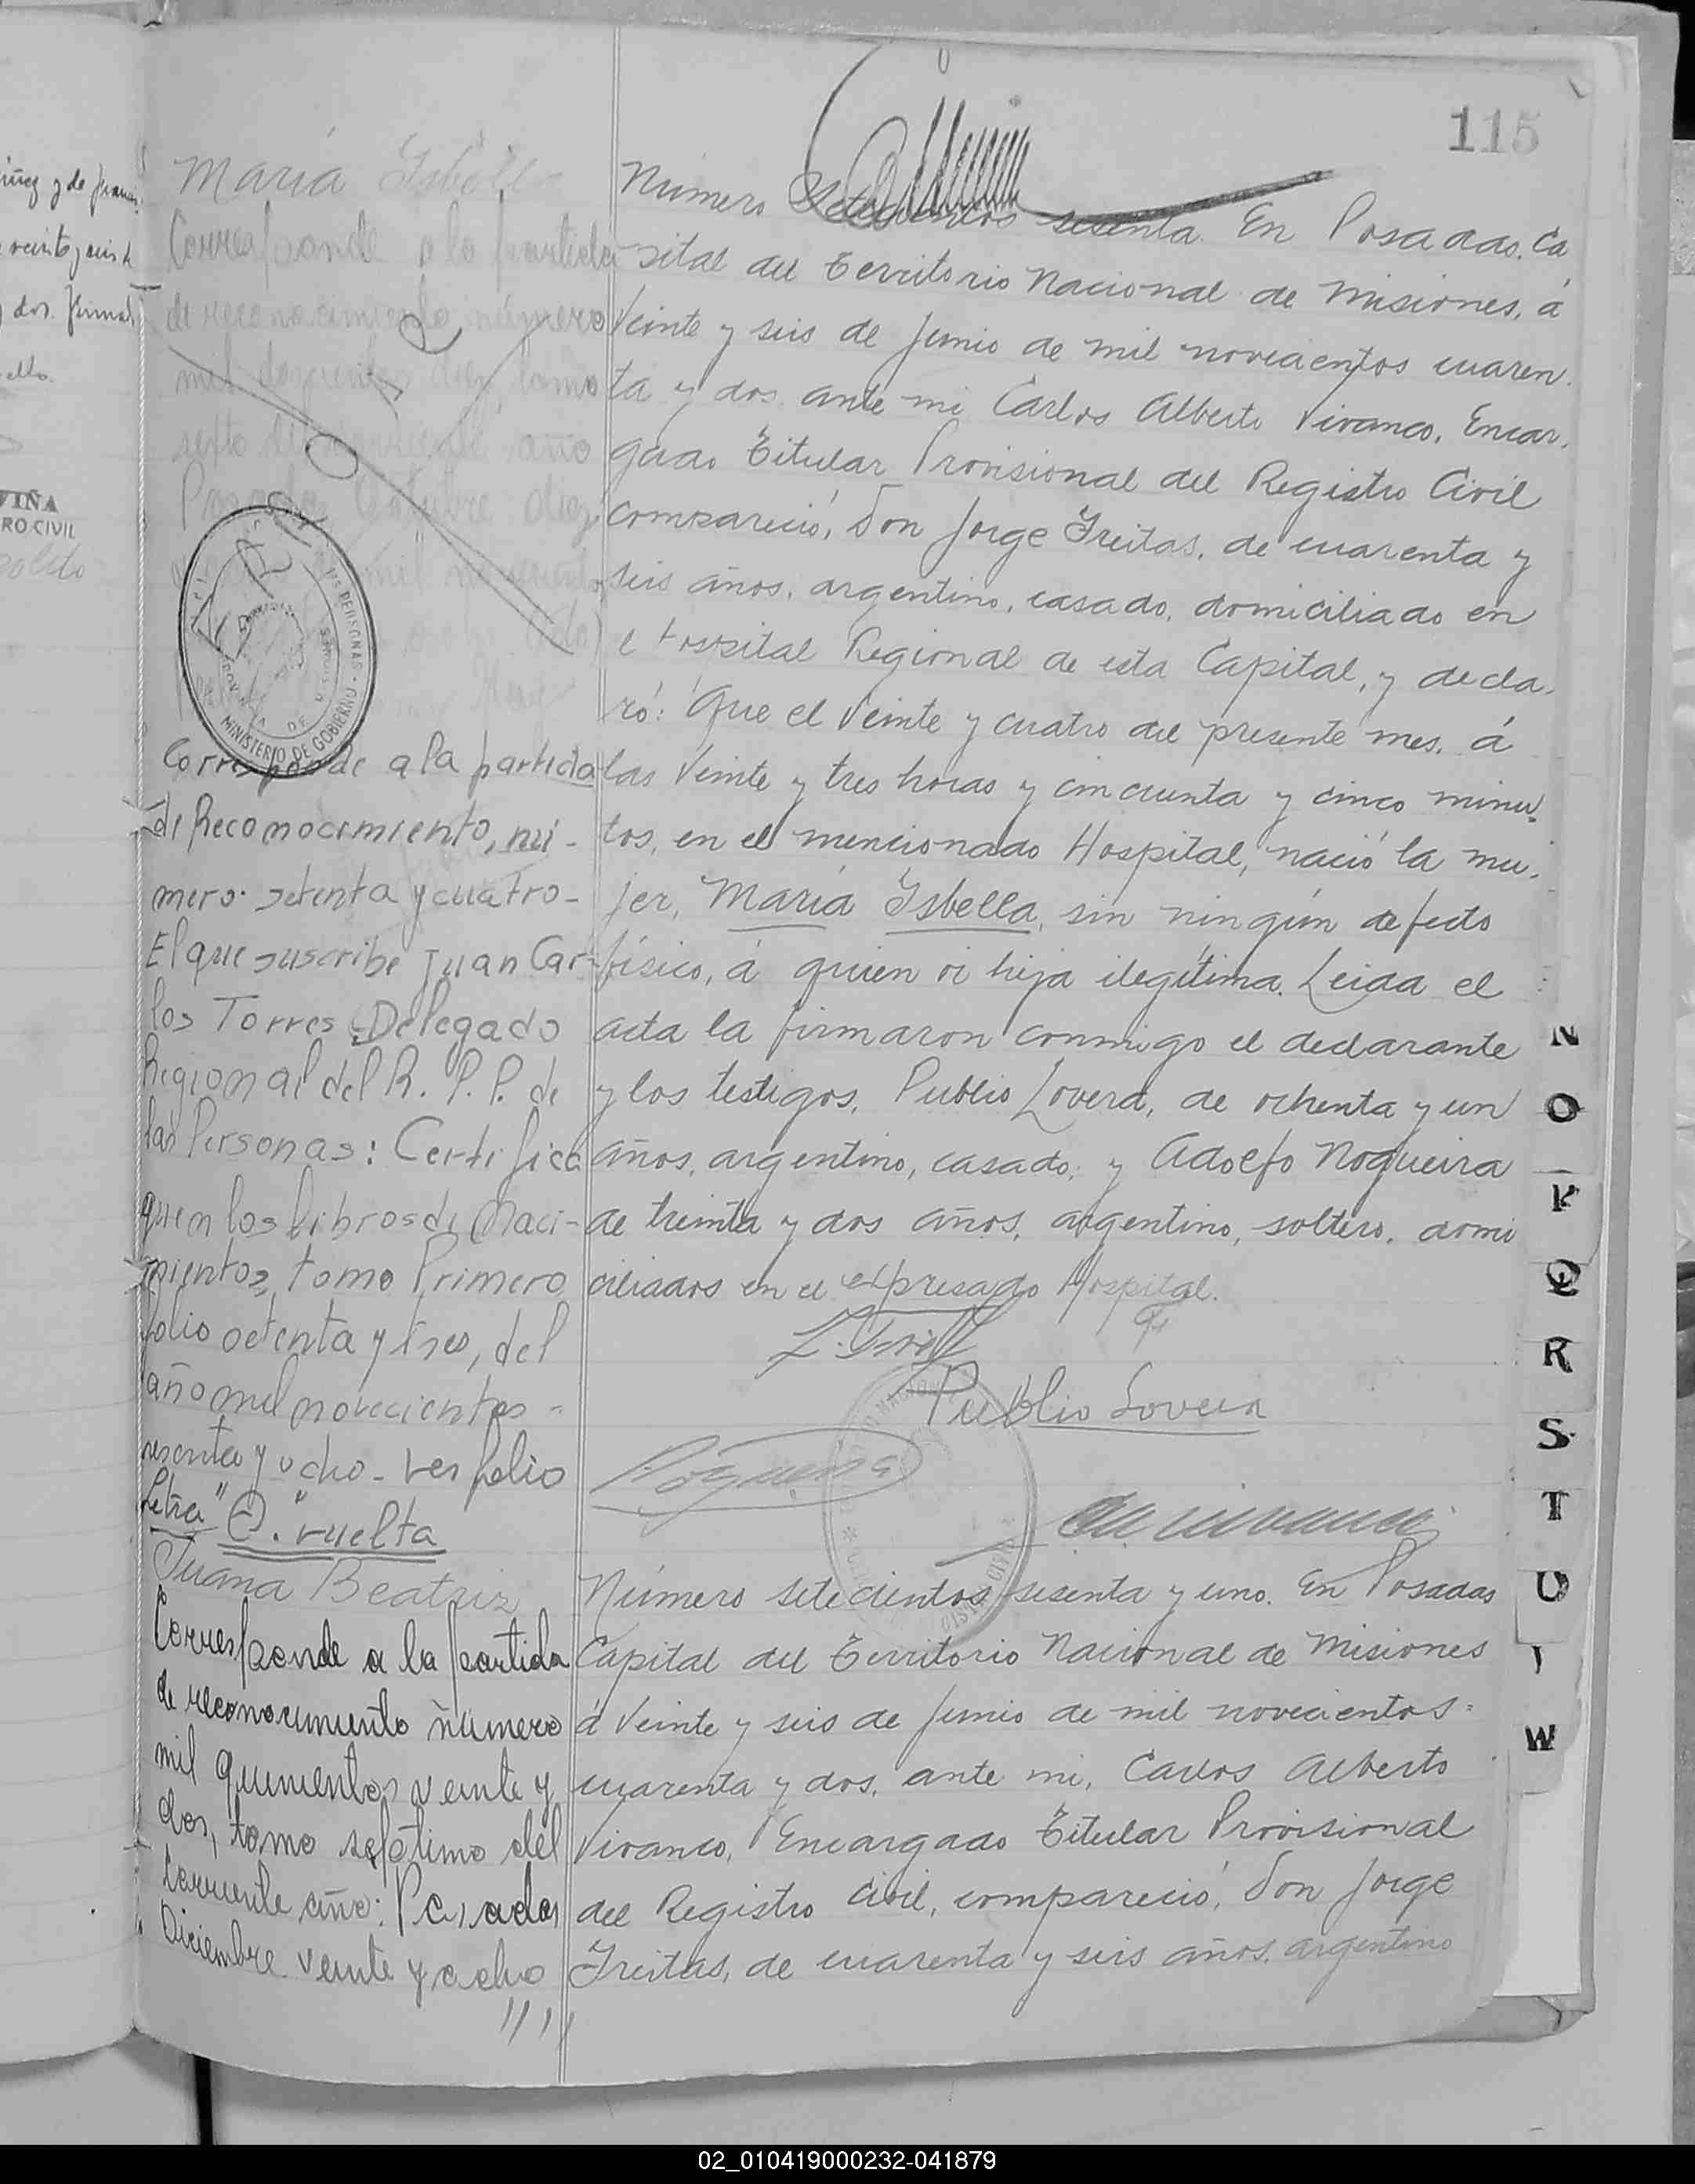 115
María Isbella
Corresponde a la partida
de reconocimiento número
mil doscientos diez tomo
sexto del corriente año
Posadas Octubre diez
mil novecientos
Corresponde a la partida
de Reconocimiento, nú-
mero setenta y cuatro-
El que suscribe Juan Car-
los Torres Delegado
Regional del R. P. P. de
las Personas: Certifica
que en los libros de Naci-
mientos, tomo Primero
folio setenta y tres, del
año mil novecientos -
sesenta y ocho - ver folio
Letra " " vuelta
MINISTERIO DE GOBIERNO
Número Setecientos sesenta. En Posadas, Ca
pital del Territorio Nacional de Misiones, á
Veinte y seis de Junio de mil novecientos cuaren.
ta y dos ante mi Carlos Alberto Vivanco, Encar.
gado Titular Provisional del Registro Civil
compareció, Don Jorge Freitas, de cuarenta y
seis años, argentino, casado, domiciliado en
el Hospital Regional de esta Capital, y decla.
ró: Que el Veinte y cuatro del presente mes, á
las Veinte y tres horas y cincuenta y cinco minu.
tos, en el mencionado Hospital, nació la mu.
jer, María Isbella, sin ningún defecto
físico, á quien vi hija ilegítima. Leida el
acta la firmaron conmigo el declarante
y los testigos, Publio Lovera, de ochenta y un
años, argentino, casado; y Adolfo Nogueira
de treinta y dos años, argentino, soltero, domi
ciliados en el expresado Hospital.
Publio Lovera
Nogueira
Juana Beatriz
Corresponde a la partida
de reconocimiento número
mil quinientos veinte y
dos, tomo septimo del
corriente año: Posadas
Diciembre veinte y ocho
////
Número setecientos sesenta y uno. En Posadas
Capital del Territorio Nacional de Misiones
á Veinte y seis de Junio de mil novecientos=
cuarenta y dos, ante mi, Carlos Alberto
Vivanco, Encargado Titular Provisional
del Registro Civil, compareció, Don Jorge
Freitas, de cuarenta y seis años, argentino
N
O
P
Q
R
S
T
U
W
VIÑA
RO CIVIL
02_010419000232-041879